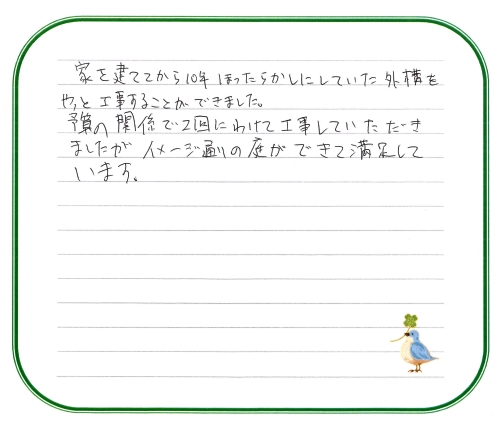 家を建ててから10年ほったらかしにしていた外構を
やっと工事することができました。
予算の関係で2回にわけて工事していただき
ましたがイメージ通りの庭ができて満足して
います。